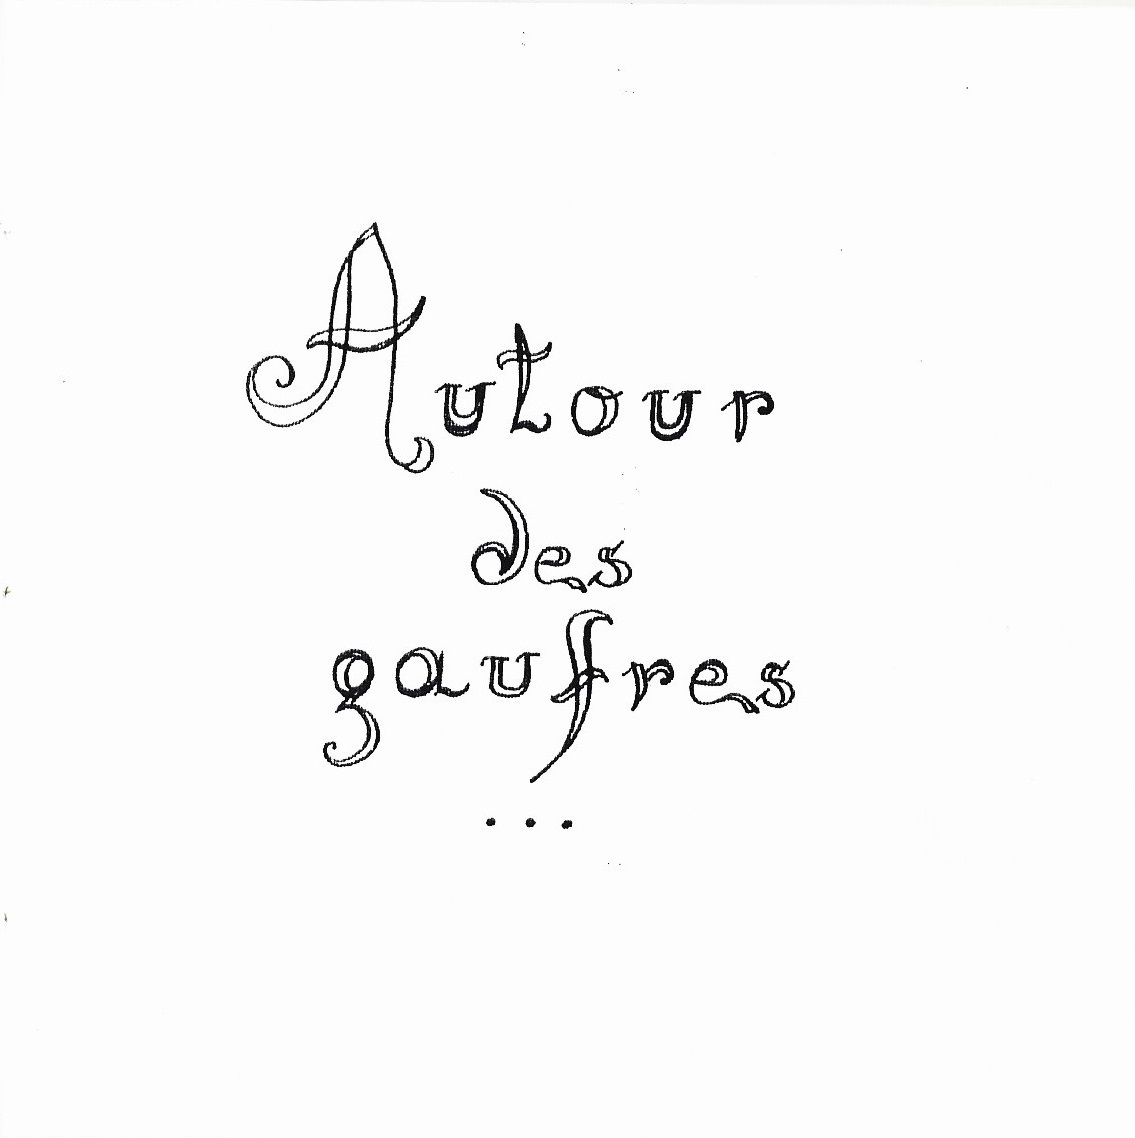 Autour
des
gaufres
...